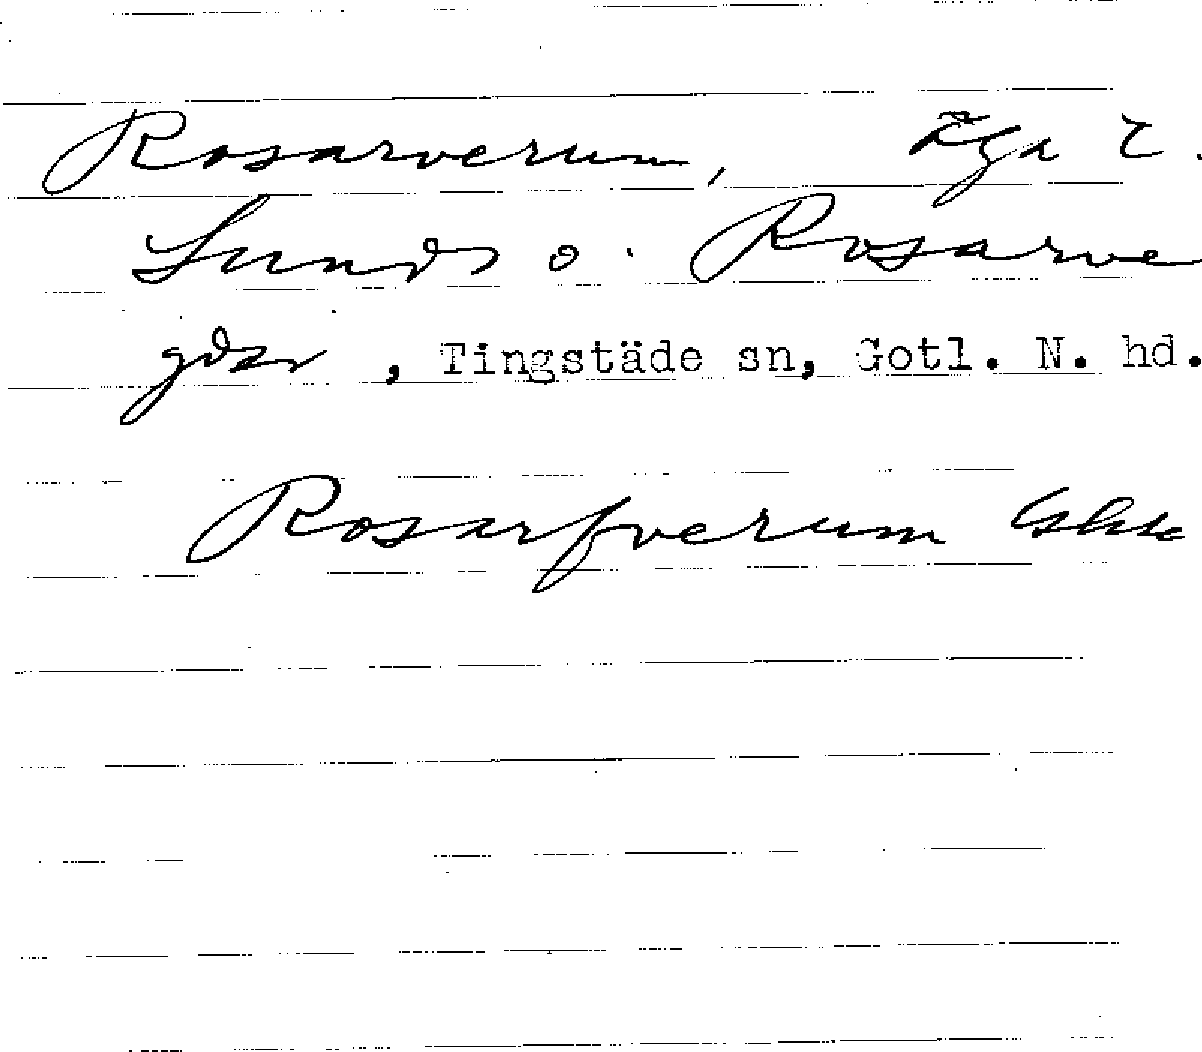 Rosarverum, äga i
Lunds o. Rosarve
gdar, Tingstäde sn, Gotl. N. hd.
Rosarfverum